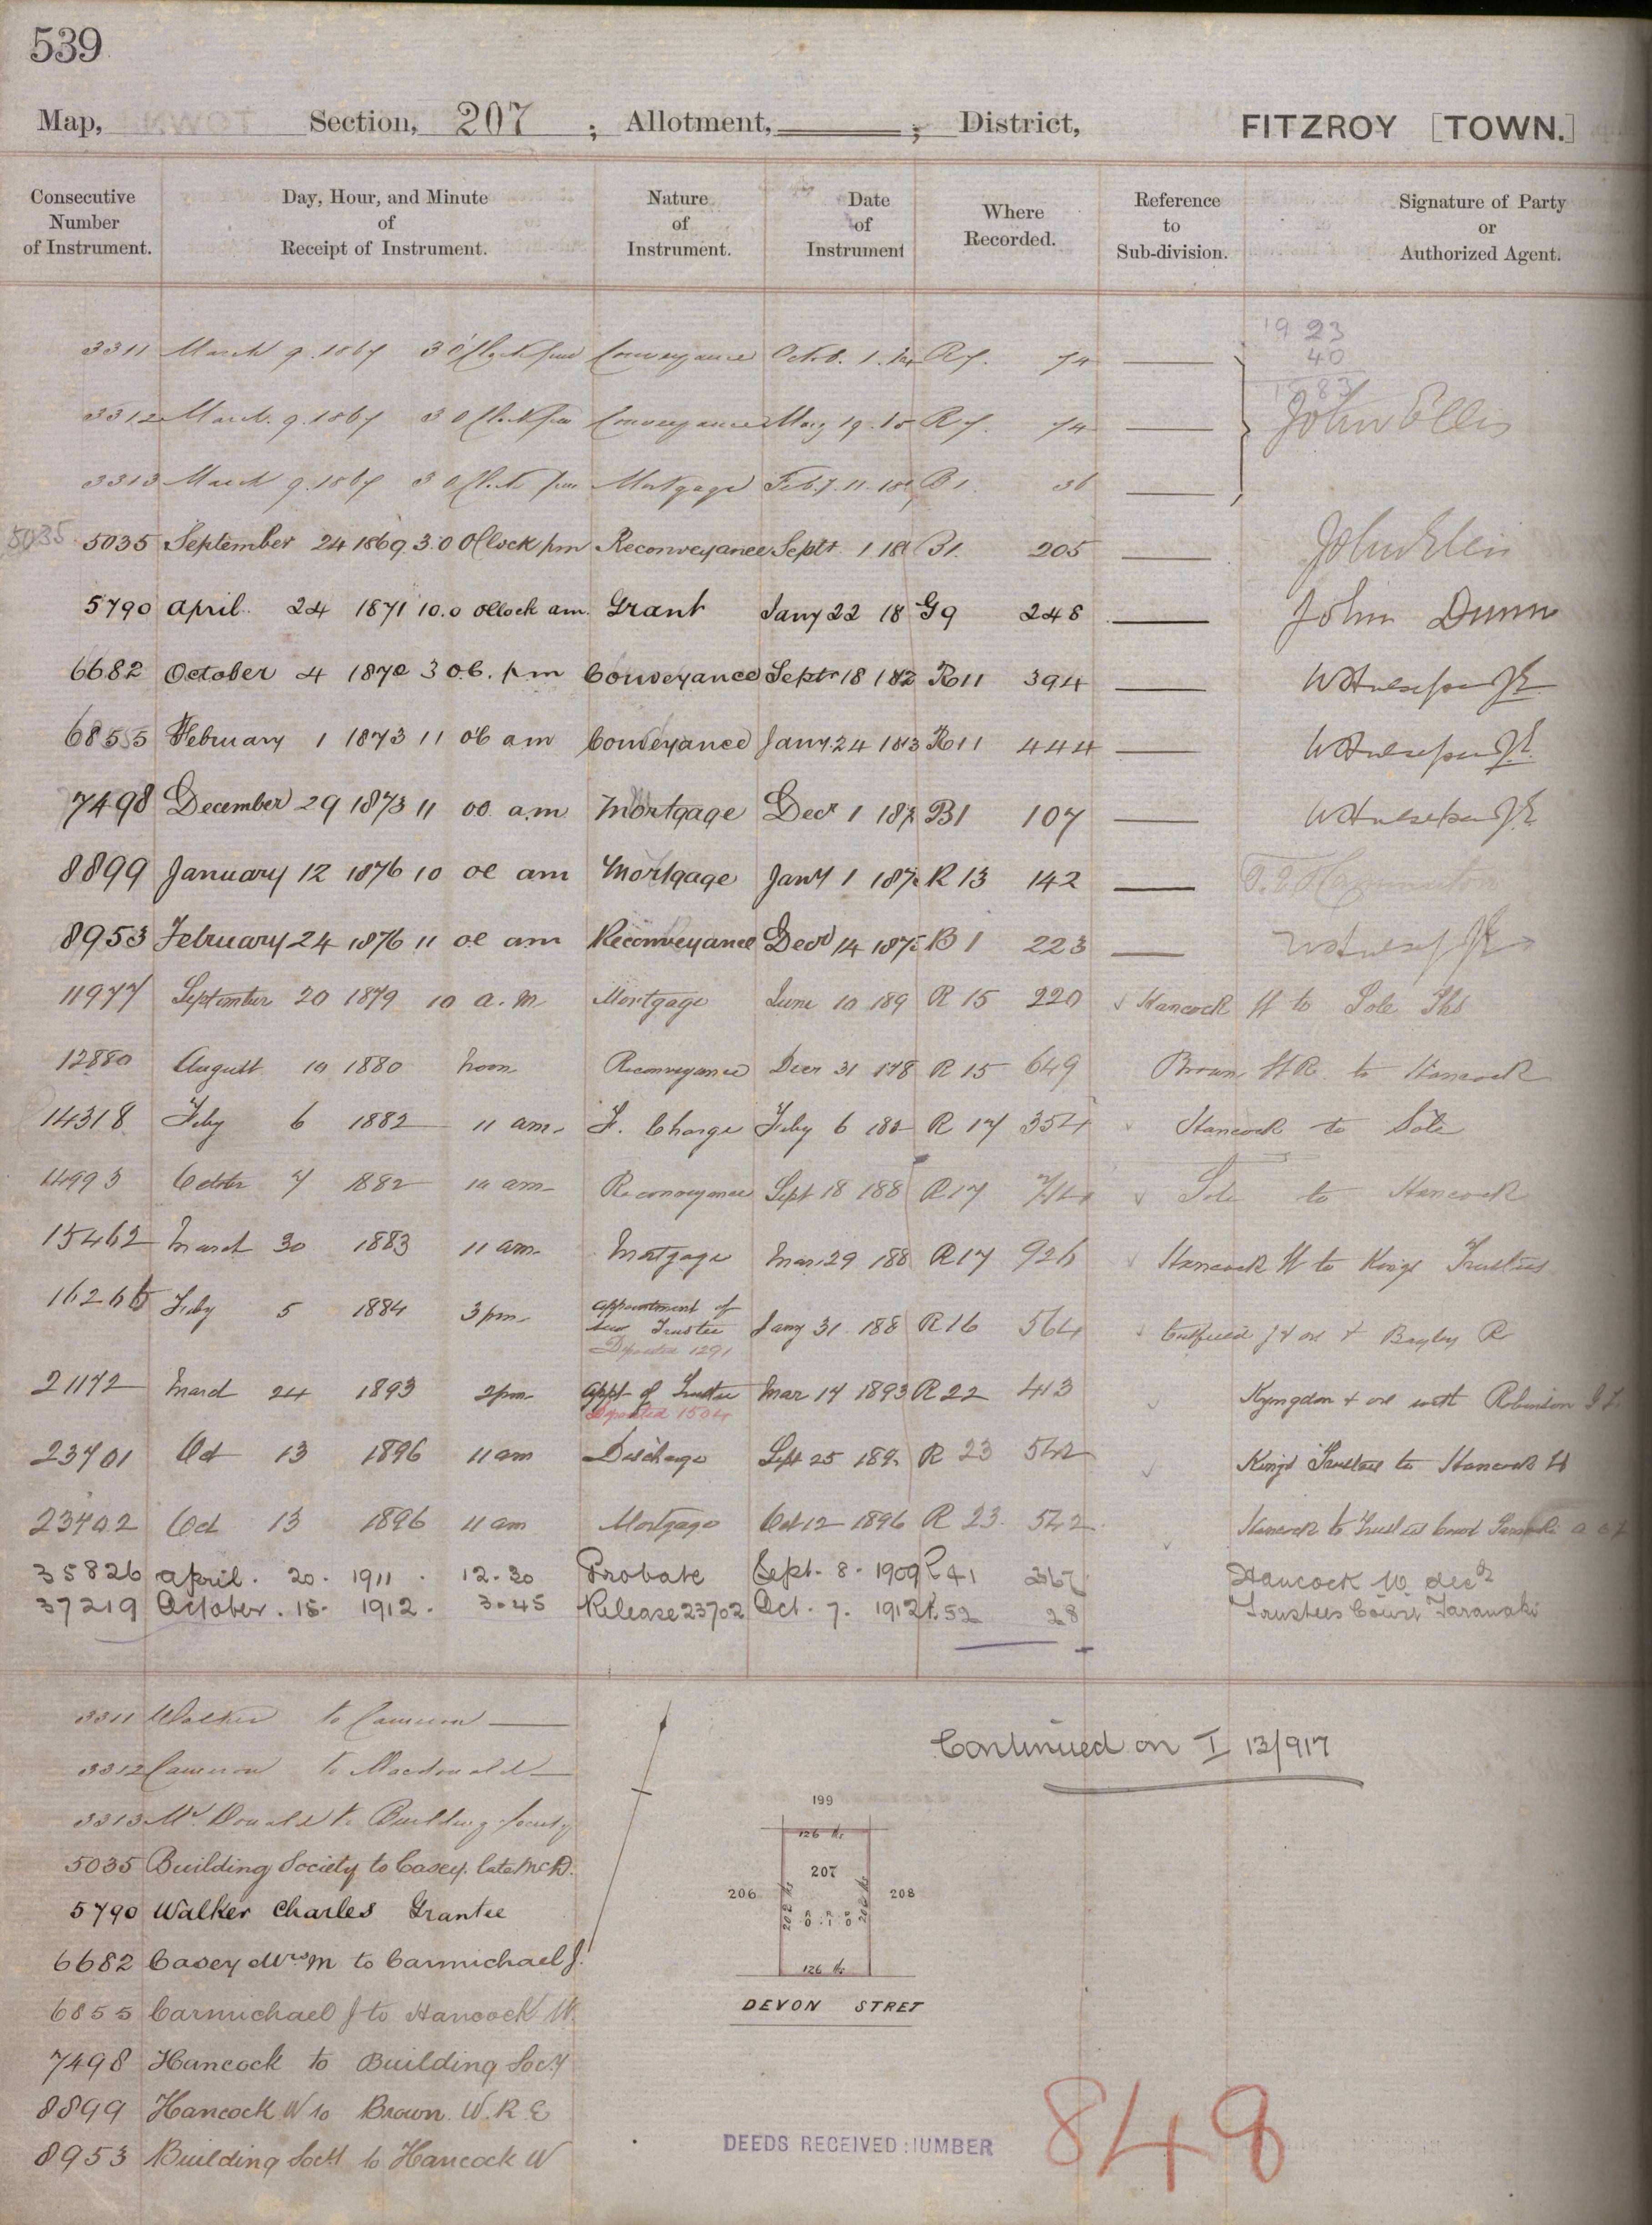 539
Map, Section, 207 ; Allotment, ; District, FITZROY [TOWN.]
Consecutive Number of Instrument. Day, Hour, and Minute of Receipt of Instrument. Nature of Instrument. Date of Instrument Where Recorded. Reference to Sub-division. Signature of Party or Authorized Agent.
19 23
40
1883
3311 March 9. 1867 3 O'Clock pm Conveyance Octob. 1. R7. 74
3312 March. 9. 1867 3 O Clock pm Conveyance May 19. R7. 74 John Ellis
3313 March 9. 1867 3 O Clock pm Mortgage B1. 36
5035 5035 September 24 1869 3.0 OClock pm Reconveyance Septr. 1 18 B1. 205 John Ellis
5790 April. 24 1871 10.0 oClock am. Grant Jany 22 18 G9 248 John Dunn
6682 October 4 1872 3 oc. pm Conveyance Septr 18 182 R11 394
6855 February 1 1873 11 oc am Conveyance Jany. 24 183 R11 444
7498 December 29 1873 11 00 a.m Mortgage Decr 1 187 B1 107
8899 January 12 1876 10 oc am Mortgage Jany 1 187 R 13 142
8953 February 24 1876 11 oc am Reconveyance Decr 14 1875 B1 223
11977 September 20 1879 10 a.m Mortgage June 10 189 R 15 220 Hancock W to Sole Ths
12880 August 10 1880 noon Reconveyance Decr 31 178 R 15 649 Brown W R. to Hancock
14318 Feby 6 1882 11 am. F. Charge Feby 6 188 R 17 354 Hancock to Sole
14993 Octbr 7 1882 10 am Reconveyance Sept 18 188 R17 714 Sole to Hancock
15462 March 30 1883 11 am. Mortgage Mar 29 188 R17 926 Hancock W to Kings Trustees
16266 Feby 5 1884 3 pm. Appointment of new Trustee Jany 31. 188 R16 564 & Bayley R
Deposited 1291
21172 March 24 1893 2pm Appt of Trustee Mar 17 1893 R 22 413 Kyngdon & or with Robinson
Deposited 1504
23701 Oct 13 1896 11 am Discharge Sept 25 189 R 23 542 King's Trustees to Hancock W
23702 Oct 13 1896 11 am Mortgage Oct 12 1896 R 23. 542 Hancock to Trustees Court Taranaki
35826 April. 20. 1911. 12.30 Probate Sept. 8. 1909 R 41 367 Hancock W. decd
37219 October. 15. 1912. 3.45 Release 23702 Oct. 7. 1912 R. 52 28 Trustees Court Taranaki
3311 Walker to Cameron
3312 Cameron to Macdonald
3313 Mc Donald to Building Society
5035 Building Society to Casey. late McD.
5790 Walker Charles Grantee
6682 Casey Mrs M to Carmichael J.
6855 Carmichael J to Hancock W.
7498 Hancock to Building Socy
8899 Hancock W to Brown. W. R. E
8953 Building Socy to Hancock W
Continued on I 13/917
199
126 lks
207
206
208
202 lks
202 lks
A R P
0 . 1 . 0
126 lks
DEVON STRET
DEEDS RECEIVED NUMBER 848